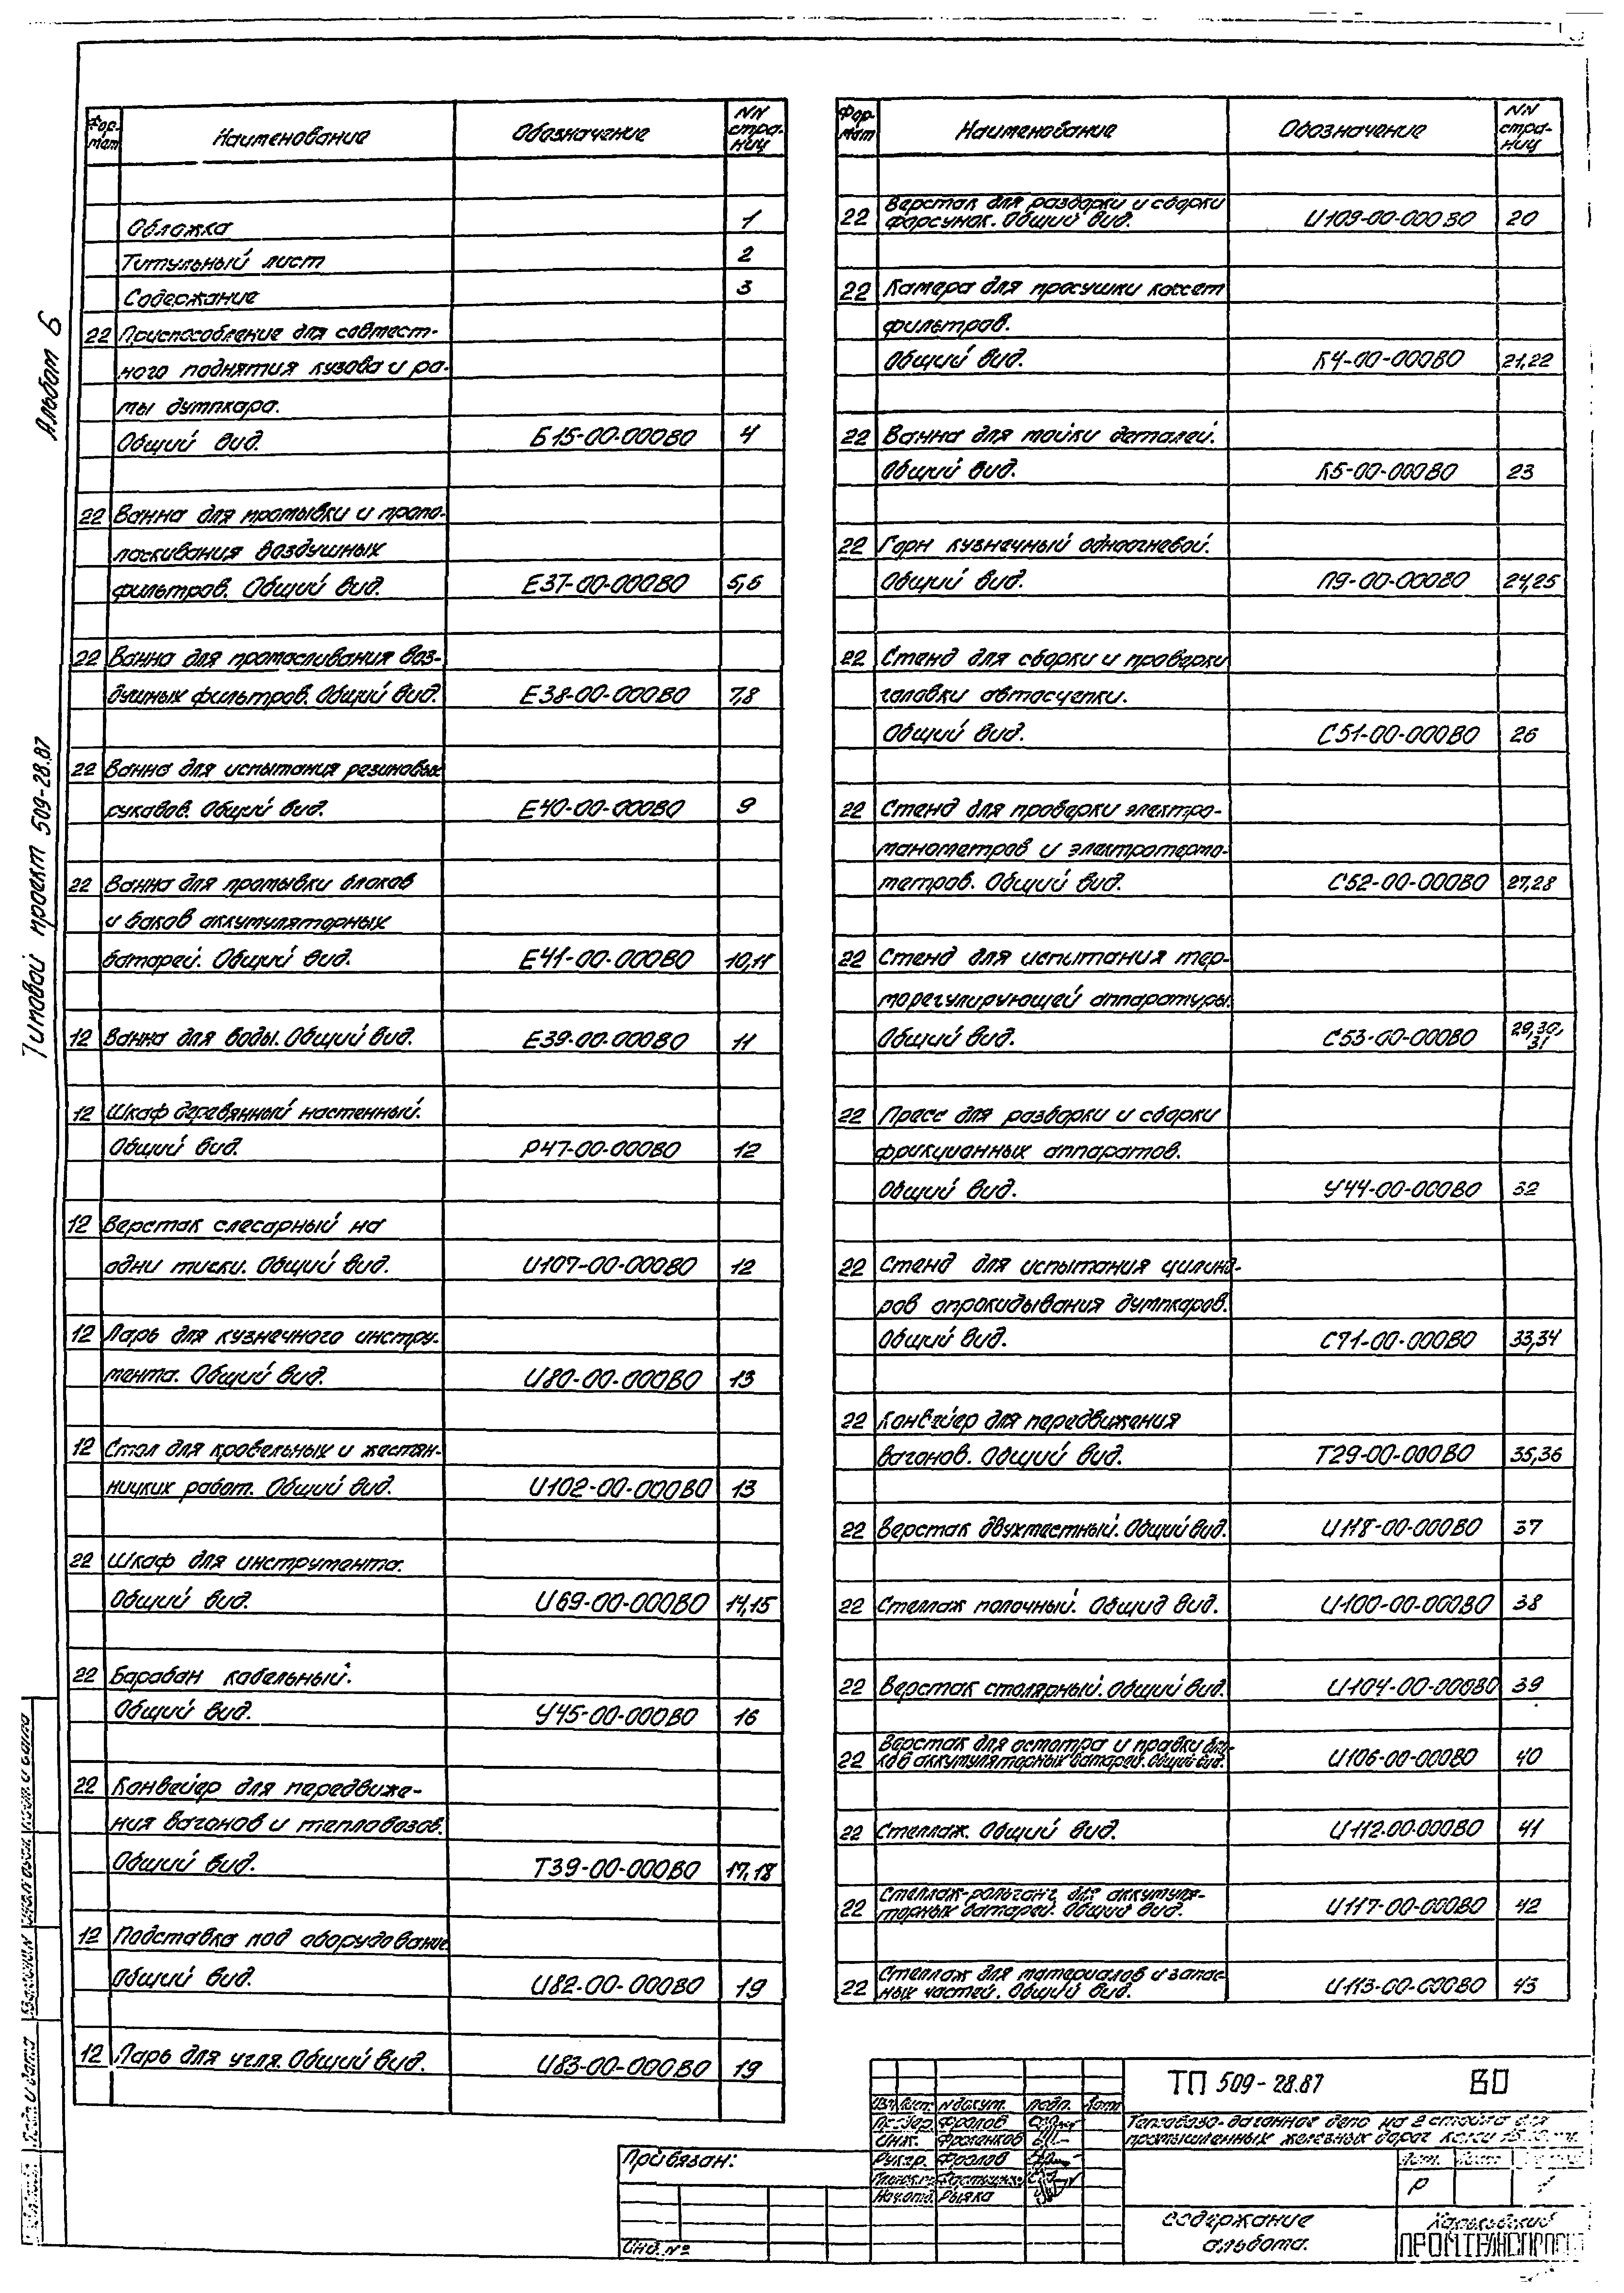 Альбом 6
Типовой проект 509-28.87
Фор-мат Наименование Обозначение NN стра-ниц
Обложка 1
Титульный лист 2
Содержание 3
22 Приспособление для совмест-
ного поднятия кузова и ра-
мы думпкара.
Общий вид. Б15-00-000ВО 4
22 Ванна для промывки и пропо-
ласкивания воздушных
фильтров. Общий вид. Е37-00-000ВО 5,6
22 Ванна для промасливания воз-
душных фильтров. Общий вид. Е38-00-000ВО 7,8
22 Ванна для испытания резиновых
рукавов. Общий вид. Е40-00-000ВО 9
22 Ванна для промывки блоков
и баков аккумуляторных
батарей. Общий вид. Е41-00-000ВО 10,11
12 Ванна для воды. Общий вид. Е39-00-000ВО 11
12 Шкаф деревянный настенный.
Общий вид. Р47-00-000ВО 12
12 Верстак слесарный на
одни тиски. Общий вид. И107-00-000ВО 12
12 Ларь для кузнечного инстру-
мента. Общий вид. И80-00-000ВО 13
12 Стол для кровельных и жестян-
ницких работ. Общий вид. И102-00-000ВО 13
22 Шкаф для инструмента.
Общий вид. И69-00-000ВО 14,15
22 Барабан кабельный.
Общий вид. У45-00-000ВО 16
22 Конвейер для передвиже-
ния вагонов и тепловозов.
Общий вид. Т39-00-000ВО 17,18
12 Подставка под оборудование
Общий вид. И82-00-000ВО 19
12 Ларь для угля. Общий вид. И83-00-000ВО 19
Фор-мат Наименование Обозначение NN стра-ниц
Верстак для разборки и сборки
22 форсунок. Общий вид. И109-00-000ВО 20
22 Камера для просушки кассет
фильтров.
Общий вид. К4-00-000ВО 21,22
22 Ванна для мойки деталей.
Общий вид. К5-00-000ВО 23
22 Горн кузнечный одноогневой.
Общий вид. П9-00-000ВО 24,25
22 Стенд для сборки и проверки
головки автосцепки.
Общий вид. С51-00-000ВО 26
22 Стенд для проверки электро-
манометров и электротермо-
метров. Общий вид. С52-00-000ВО 27,28
22 Стенд для испытания тер-
морегулирующей аппаратуры.
Общий вид. С53-00-000ВО 29,30,31
22 Пресс для разборки и сборки
фрикционных аппаратов.
Общий вид. У44-00-000ВО 32
22 Стенд для испытания цилинд-
ров опрокидывания думпкаров.
Общий вид. С71-00-000ВО 33,34
22 Конвейер для передвижения
вагонов. Общий вид. Т29-00-000ВО 35,36
22 Верстак двухместный. Общий вид. И118-00-000ВО 37
22 Стеллаж полочный. Общид вид. И100-00-000ВО 38
22 Верстак столярный. Общий вид. И104-00-000ВО 39
Верстак для осмотра и правки бло-
22 ков аккумуляторных батарей. Общий вид. И106-00-000ВО 40
22 Стеллаж. Общий вид. И112-00-000ВО 41
Стеллаж-рольганг для аккумуля-
22 торных батарей. Общий вид. И117-00-000ВО 42
Стеллаж для материалов и запас-
22 ных частей. Общий вид. И113-00-000ВО 43
ТП 509-28.87 ВО
Изм. Лист. N докум. Подп. Дата
Фролов
Инж.
Рук.гр. Фролов
Нач.отд. Рыжка
Тепловозо-вагонное депо на 2 стойла для
промышленных железных дорог колеи
Р
содержание
альбома.
Харьковский
ПРОМТРАНСПРОЕКТ
Привязан:
Инв. №
Подп. и дата